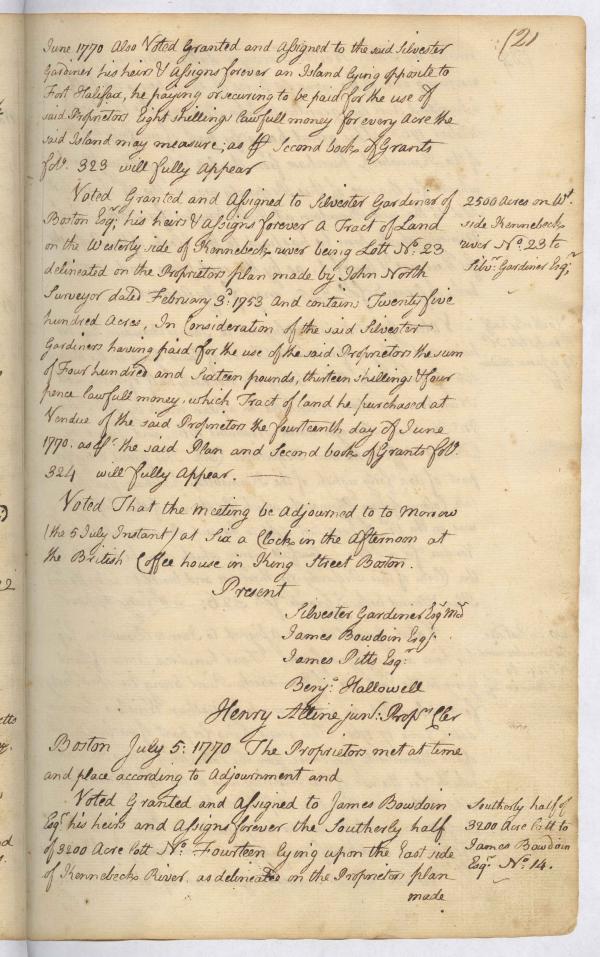 (21
June 1770 Also Voted Granted and Assigned to the said Silvester
Gardiner his heirs & Assigns forever an Island lying opposite to
Fort Halifax, he paying or securing to be paid for the use of
said Proprietors Eight shillings lawfull money for every Acre the
said Island may measure; as Second book of Grants
folo. 323 will fully Appear
Voted Granted and Assigned to Silvester Gardiner of
Boston Esqr; his heirs & Assigns forever A Tract of Land
on the Westerly side of Kennebeck river being Lott No. 23
delineated on the Proprietors plan made by John North
Surveyor dated February 3d: 1753 and contains Twenty five
hundred Acres, In Consideration of the said Silvester
Gardiners having paid for the use of the said Proprietors the sum
of Four hundred and Sixteen pounds, thirteen shillings & four
pence lawfull money, which Tract of land he purchased at
Vendue of the said Proprietors the fourteenth day of June
1770. as pr. the said Plan and Second book of Grants folo.
324 will fully Appear.
2500 Acres on Wt.
side Kennebeck
river No. 23 to
Silvr. Gardiner Esqr;
Voted That the meeting be Adjourned to to Morrow
(the 5 July Instant) at Six a Clock in the Afternoon at
the British Coffee house in King Street Boston.
Present
Silvester Gardiner Esqr Modr
James Bowdoin Esqr.
James Pitts Esqr:
Benja. Hallowell
Henry Alline junr: Proprs Cler
Boston July 5: 1770 The Proprietors met at time
and place according to Adjournment and
Voted Granted and Assigned to James Bowdoin
Esqr his heirs and Assigns forever the Southerly half
of 3200 Acre Lott No. Fourteen lying upon the East side
of Kennebeck River. as delineated on the Proprietors plan
made
Southerly half of
3200 Acre Lott to
James Bowdoin
Esqr. No. 14.